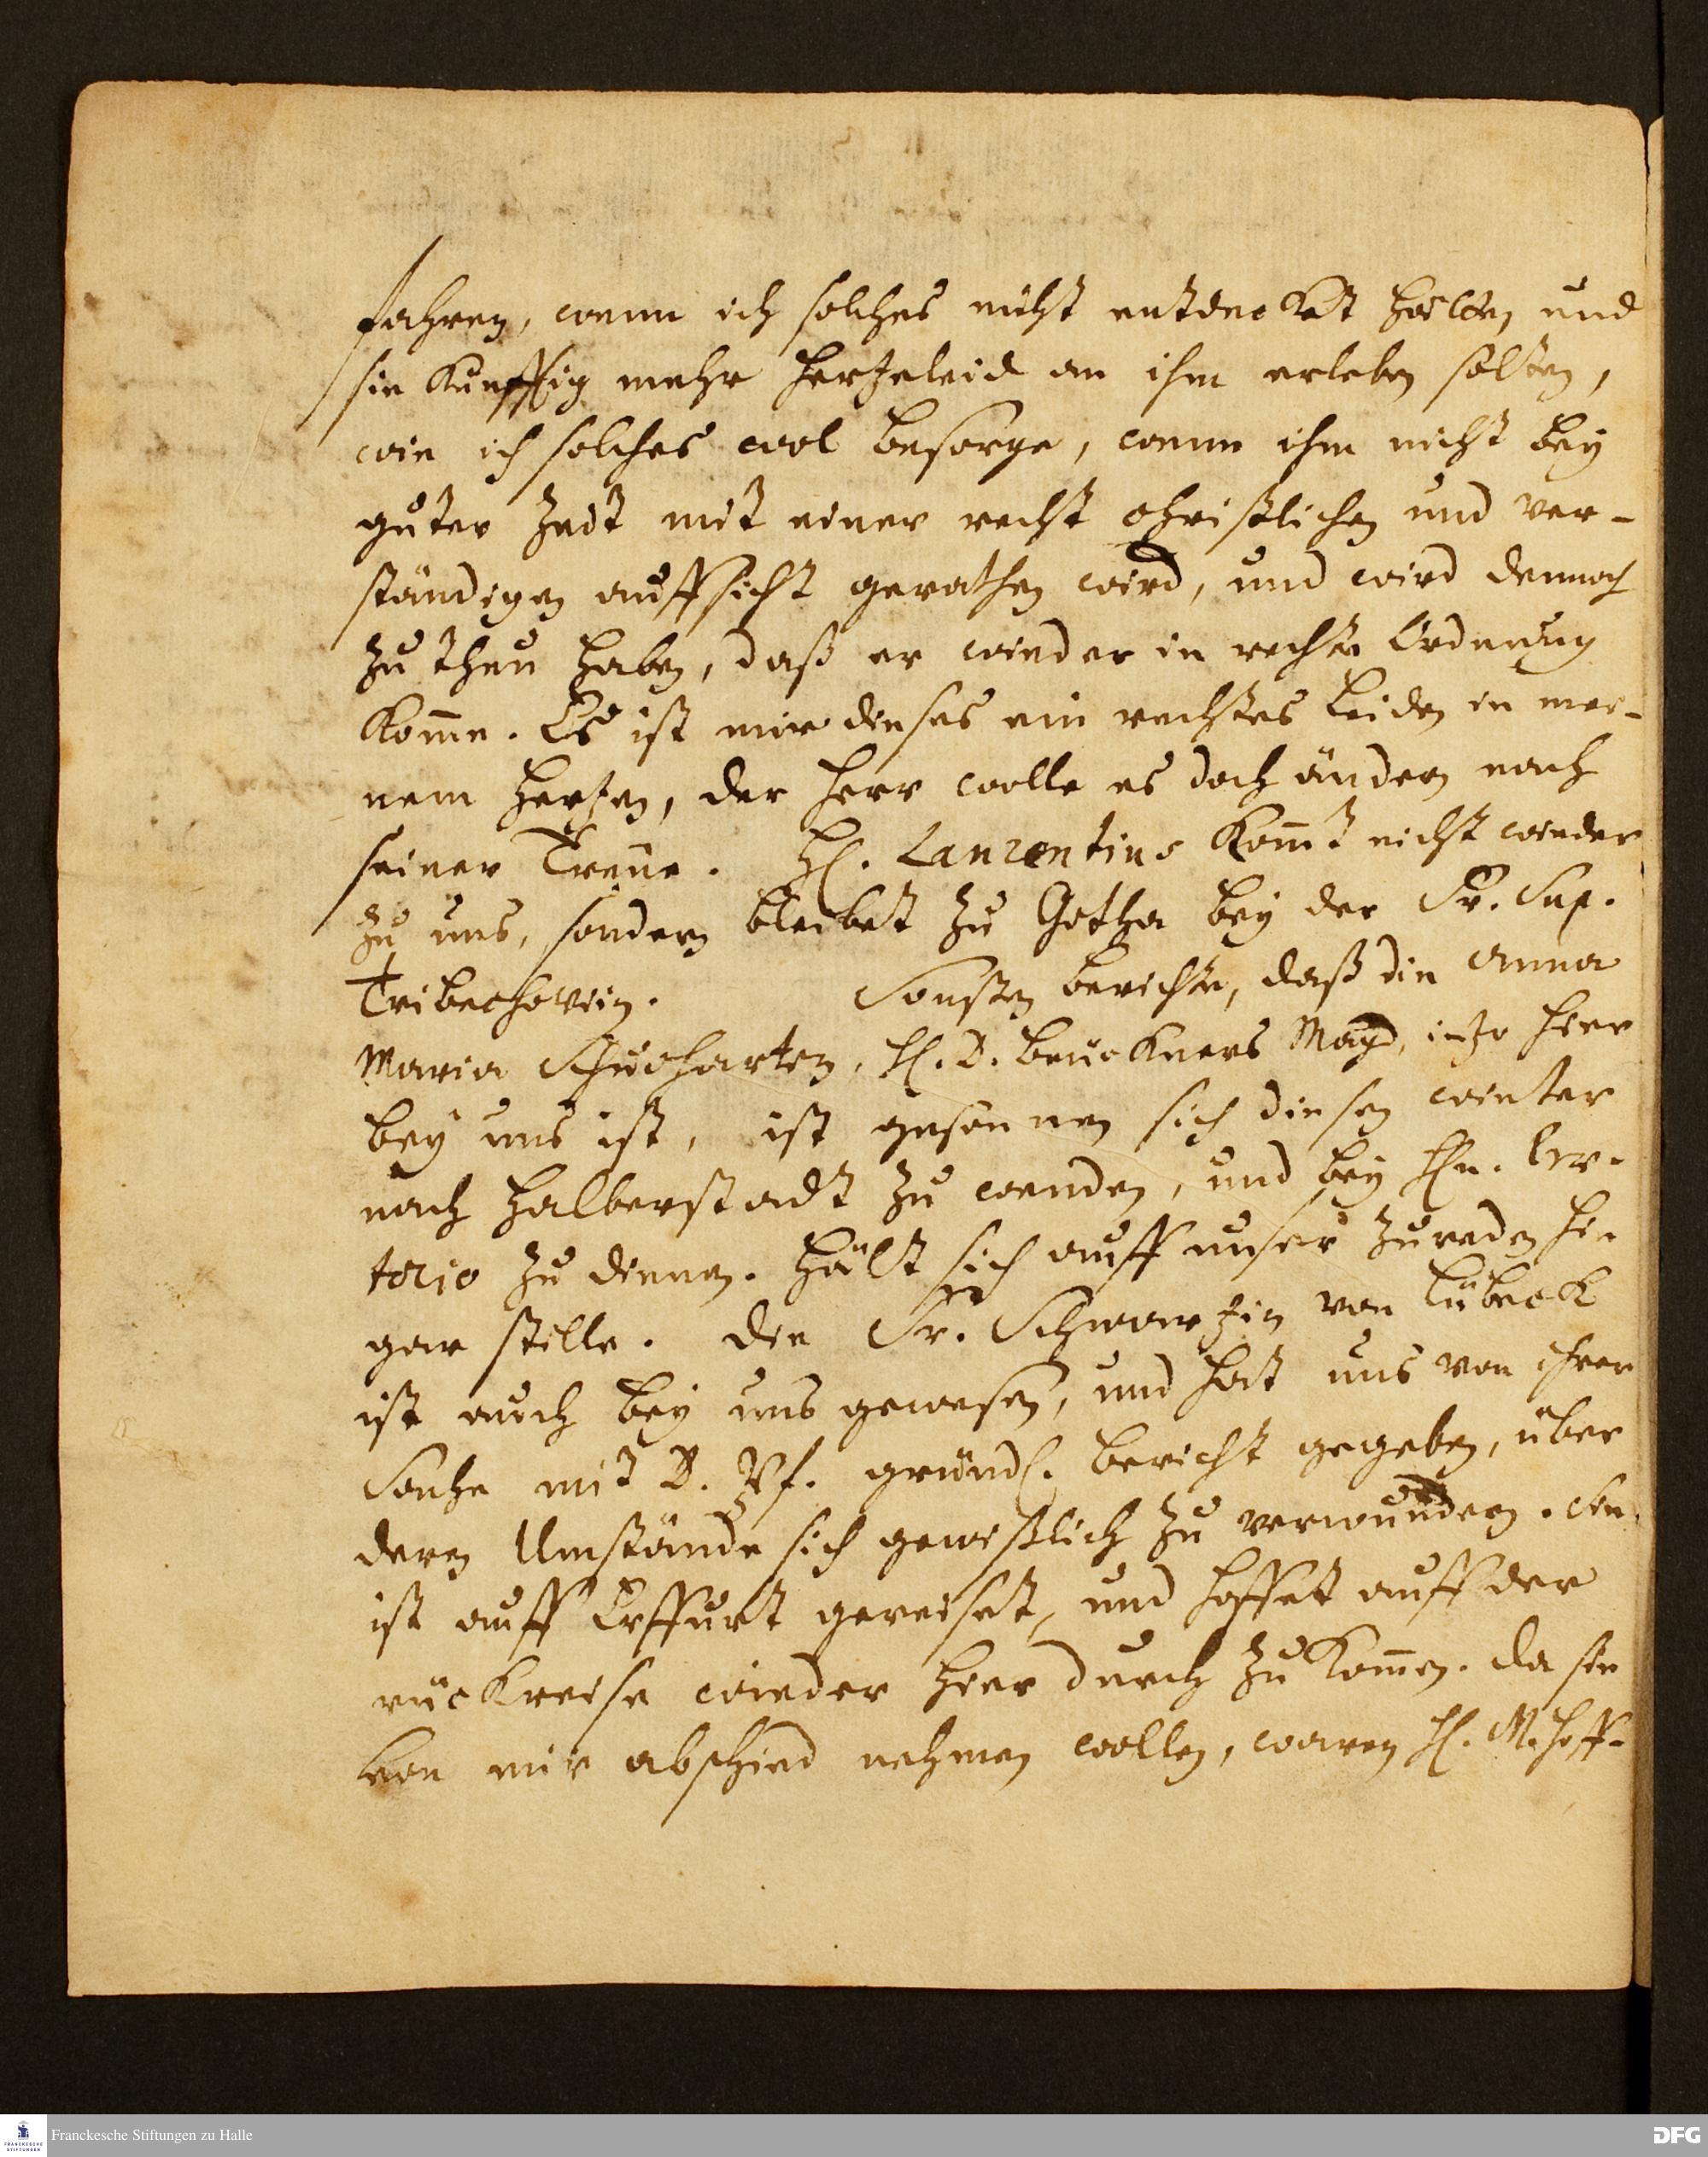 fahren, wenn ich solches nicht entdecket hätte, und
sie künfftig mehr Hertzeleid an ihm erleben solten,
wie ich solches wol besorge, wenn ihm nicht bey
guter Zeit mit einer recht christlichen und ver-
ständigen auffsicht gerathen wird, und wird dennoch
zu thun haben, daß er wieder in rechte Ordnung
kom̅e. Es ist mir dieses ein rechtes Leiden in mei-
nem Hertzen, der Herr wolle es doch ändern nach
seiner Treue. H. Laurentius kom̅t nicht wieder
zu uns, sondern bleibet zu Gotha bey der Fr. Sup.
Tribechoviin. Sonsten berichte, daß die Anna
Maria Schucharten, H. D. Brückners Magd, itzo hier
bey uns ist, ist gesonnen sich diesen winter
nach Halberstadt zu wenden, und bey Hn.
torio zu dienen. Hält sich auff unser zureden hie
gar stille. Die Fr. Schwartzin von Lübeck
ist auch bey uns gewesen, und hat uns von ihrer
Sache mit D. Pf. gründl. bericht gegeben, über
deren Umstände sich gewißlich zu verwundern. Sie
ist auff Erffurt gereiset, und hoffet auff der
rückreise wieder hier durch zu kom̅en. Da sie
von mir abschied nehmen wollen, waren H. M. Hoff-
Franckesche Stiftungen zu Halle
FRANCKESCHE
STIFTUNGEN
DFG